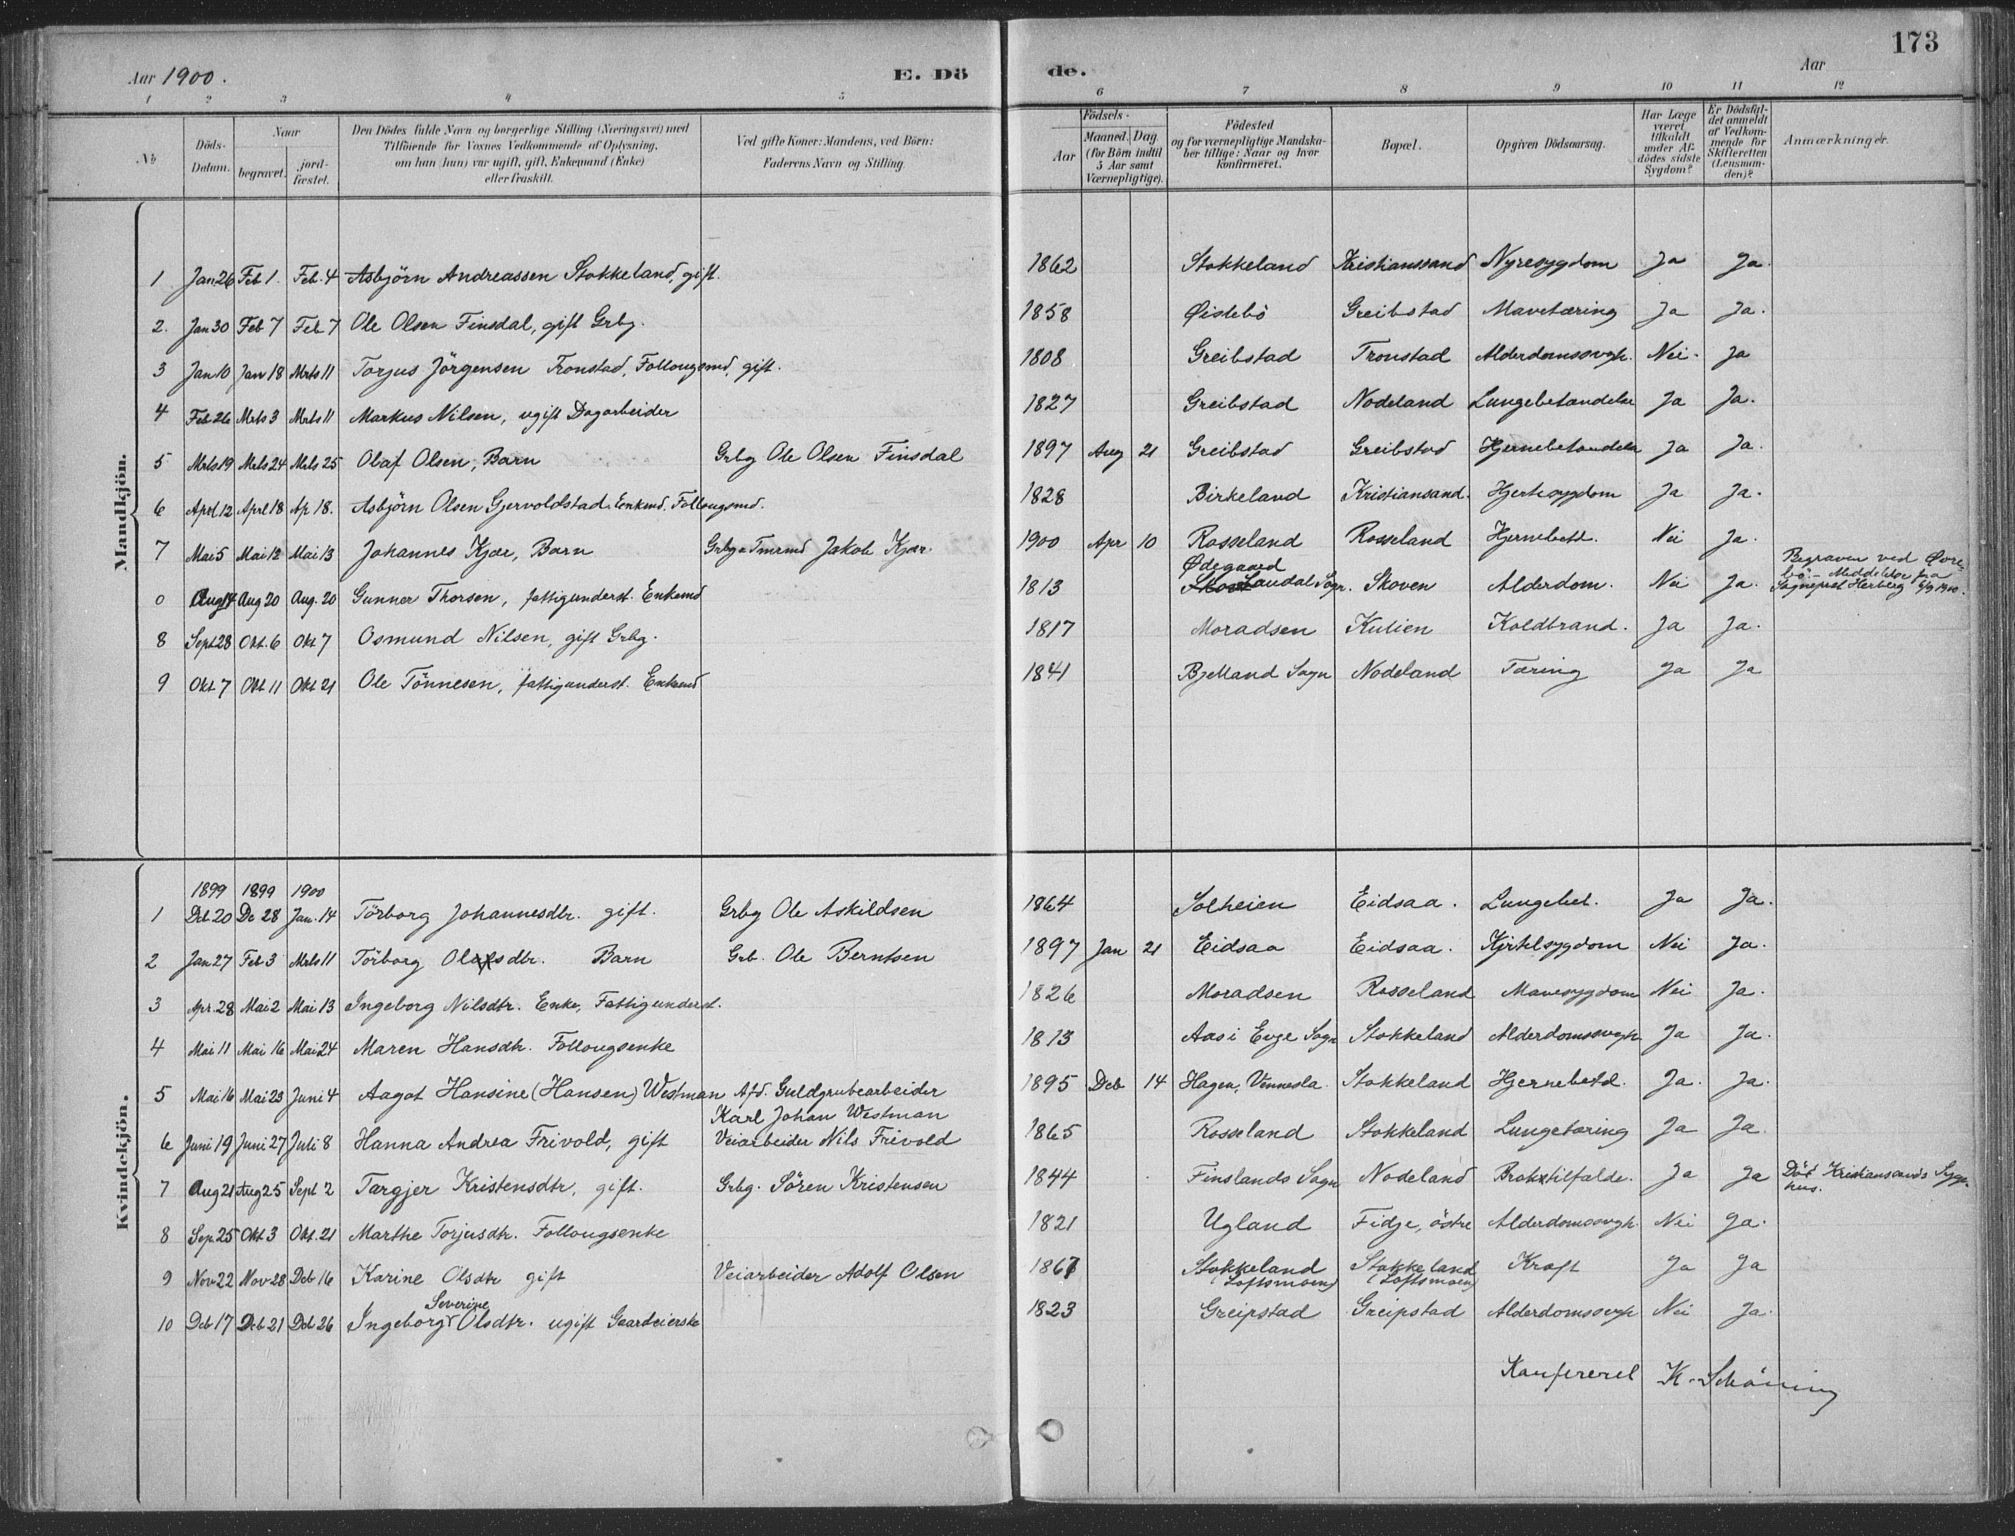 Aar 1900.
E. Dö
de.
173
Aar
1 2 3 4 5
6 7 8 9 10 11 12
No
Döds-Datum.
Naar
begravet.
jord-fæstet.
Den Dödes fulde Navn og borgerlige Stilling (Næringsvei) med
Tilföiende for Voxnes Vedkommende af Oplysning,
om han (hun) var ugift, gift, Enkemand (Enke)
eller fraskilt.
Ved gifte Koner: Mandens, ved Börn:
Faderens Navn og Stilling.
Födsels-
Aar
Maaned. Dag
(for Börn indtil
5 Aar samt
Værnepligtige).
Födested
og for værnepligtige Mandska-
ber tillige: Naar og hvor
konfirmeret.
Bopæl.
Opgiven Dödsaarsag.
Har Læge
været
tilkaldt
under Af-
dödes sidste
Sygdom?
Er Dödsfal-
det anmeldt
af Vedkom-
mende for
Skifteretten
(Lensman-
den)?
Anmærkninger.
Mandkjön.
1 Jan 26 Feb 1. Feb. 4 Asbjörn Andreassen Stokkeland, gift. 1862 Stokkeland Kristianssand Nyresygdom Ja Ja.
2. Jan 30 Feb 7 Feb 7 Ole Olsen Finsdal, gift Grbg. 1858 Øislebö Greibstad Mavetæring Ja Ja.
3 Jan 10 Jan 18 Mrts 11 Torjus Jörgensen Tronstad, Follougsmd, gift. 1808 Greibstad Tronstad Alderdomssvgh. Nei. Ja
4 Feb 26 Mrts 3 Mrts 11 Markus Nilsen, ugift Dagarbeider 1827 Greibstad Nodeland Lungebetændelse Ja Ja.
5 Mrts 19 Mrts 24 Mrts 25 Olaf Olsen, Barn Grbg Ole Olsen Finsdal 1897 Aug 21 Greibstad Greibstad Hjernebetændelse Ja Ja.
6 Aprl 12 Aprl 18 Ap 18. Asbjörn Olsen Gjervoldstad, Enkmd. Follougsmd. 1828 Birkeland Kristiansand. Hjertesygdom Ja Ja.
7 Mai 5 Mai 12 Mai 13 Johannes Kjær, Barn Grbg & Tmrmd Jakob Kjær. 1900 Apr 10 Rosseland Rosseland Hjernebetd. Nei Ja.
Ødegaard
0 Aug 14 Aug 20 Aug. 20 Gunner Thorsen, fattigunderst. Enkemd 1813 Laudal Sogn. Skoven Alderdom. Nei Ja. Begraven ved Øvre-
bö. - Meddelelse fra
Sognepræst Herberg 6/9 1900.
8 Sept 28 Okt. 6 Okt 7 Osmund Nilsen, gift Grbg. 1817 Moradsen Kulien Koldbrand. Ja Ja.
9 Okt 7 Okt 11 Okt 21 Ole Tönnesen, fattigunderst. Enkemd 1841 Bjelland Sogn Nodeland Tæring Ja Ja
Kvindekjön.
1899 1899 1900
1 Deb 20 De 28 Jan. 14 Törborg Johannesdtr. gift. Grbg Ole Askildsen 1864 Solheien Eidsaa. Lungebet. Ja Ja.
2 Jan 27 Feb 3 Mrts 11 Törborg Olsdtr. Barn Grb. Ole Berntsen 1897 Jan 21 Eidsaa Eidsaa. Kjrtelsygdom Nei Ja.
3 Apr. 28 Mai 2 Mai 13 Ingeborg Nilsdtr. Enke, Fattigunderst. 1826 Moradsen Rosseland Mavesygdom Nei Ja.
4 Mai 11 Mai 16 Mai 24 Maren Hansdtr. Follougsenke 1813 Aas i Evje Sogn Stokkeland Alderdomssvgh Ja Ja.
5 Mai 16 Mai 23 Juni 4 Aagot Hansine (Hansen) Westman Afd. Guldgrubearbeider 1895 Deb 14 Hagen, Vennesla Stokkeland Hjernebetd. Ja. Ja.
Karl Johan Westman
6 Juni 19 Juni 27 Juli 8 Hanna Andrea Frivold, gift Veiarbeider Nils Frivold 1865 Rosseland Stokkeland Lungetæring Ja Ja.
7 Aug 21 Aug 25 Sept 2 Targjer Kristensdtr, gift. Grbg. Sören Kristensen 1844 Finslands Sogn Nodeland Broktilfælde. Ja Ja Död Kristianssands Syge-
hus.
8 Sep. 25 Okt 3 Okt. 21 Marthe Torjusdtr. Follougsenke 1821 Ugland Fidje, östre Alderdomssvgh. Nei Ja.
9 Nov 22 Nov 28 Deb 16 Karine Olsdtr gift Veiarbeider Adolf Olsen 1867 Stokkeland Stokkeland Kræft Ja Ja
(Loftsmoen) (Loftsmoen)
Severine
10 Deb 17 Deb 21 Deb 26 Ingeborg Olsdtr. ugift Gaardeierske 1823 Greipstad Greipstad Alderdomssvgh Nei Ja.
Konfereret K. Schöning